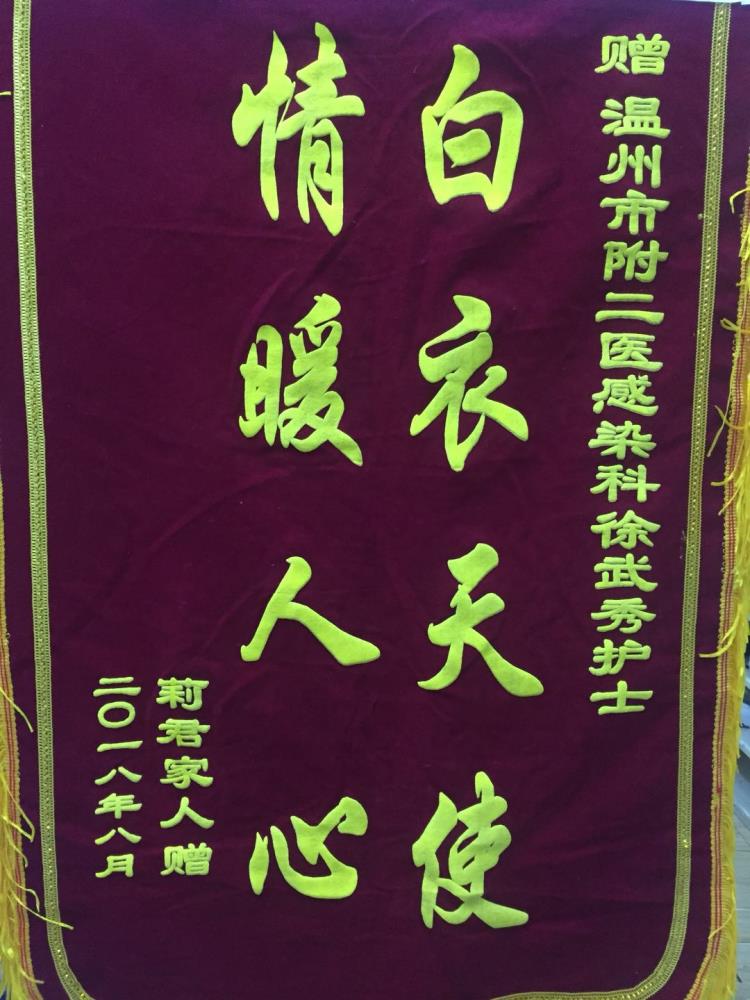 赠 温州市附二医感染科徐武秀护士
白衣天使
情暖人心
莉君家人赠
二〇一八年八月